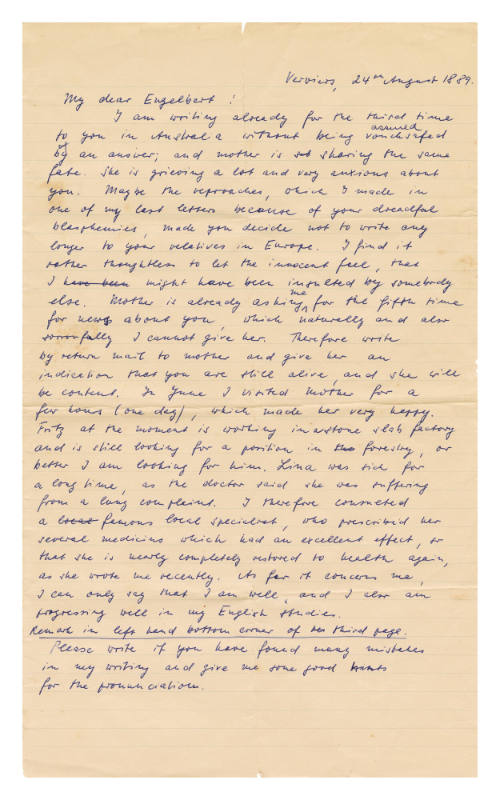 Verviers, 24th August 1889.
My dear Engelbert!
I am writing already for the third time
to you in Australia without being vouchsafed
assured
by an answer; and mother is sharing the same
of
fate. She is grieving a lot and very anxious about
you. Maybe the reproaches, which I made in
one of my last letters because of your dreadful
blasphemies, made you decide not to write any
longer to your relatives in Europe. I find it
rather thoughtless to let the innocent feel, that
I have been might have been insulted by somebody
else. Mother is already asking for the fifth time
me
for news about you, which naturally and also
sorrowfully I cannot give her. Therefore write
by return mail to mother and give her an
indication that you are still alive, and she will
be content. In June I visited Mother for a
few hours (one day), which made her very happy.
Fritz at the moment is working in a stone slab factory
and is still looking for a position in the forestry, or
better I am looking for him. Lina was sick for
a long time, as the doctor said she was suffering
from a lung complaint. I therefore consulted
a local famous local specialist, who prescribed her
several medicins which had an excellent effect, so
that she is nearly completely restored to health again,
as she wrote me recently. As far it concerns me,
I can only say that I am well, and I also am
progressing well in my English studies.
Remark in left hand bottom corner of third page.
Please write if you have found many mistakes
in my writing and give me some good hints
for the pronunciation.